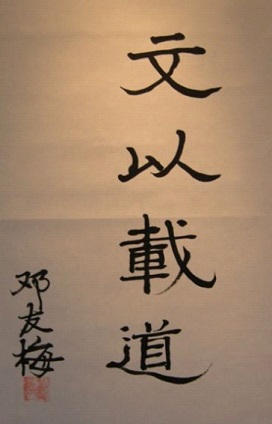 文以載道
邓友梅